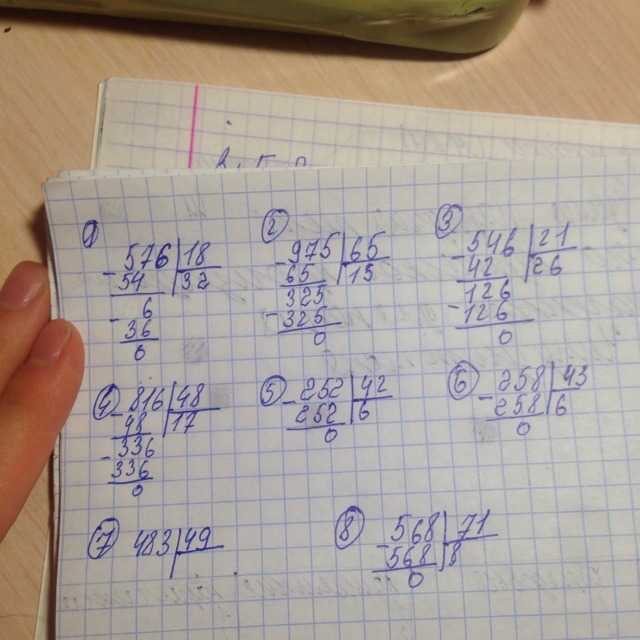 1) 576 | 18
- 54 | 32
- 6
36
0
2) - 975 | 65
65 | 15
- 325
326
0
3) - 546 | 21
42 | 26
- 126
126
0
4) - 816 | 48
48 | 17
- 336
336
0
5) - 252 | 42
252 | 6
0
6) - 258 | 43
258 | 6
0
7) 483 | 49
8) - 568 | 71
568 | 8
0